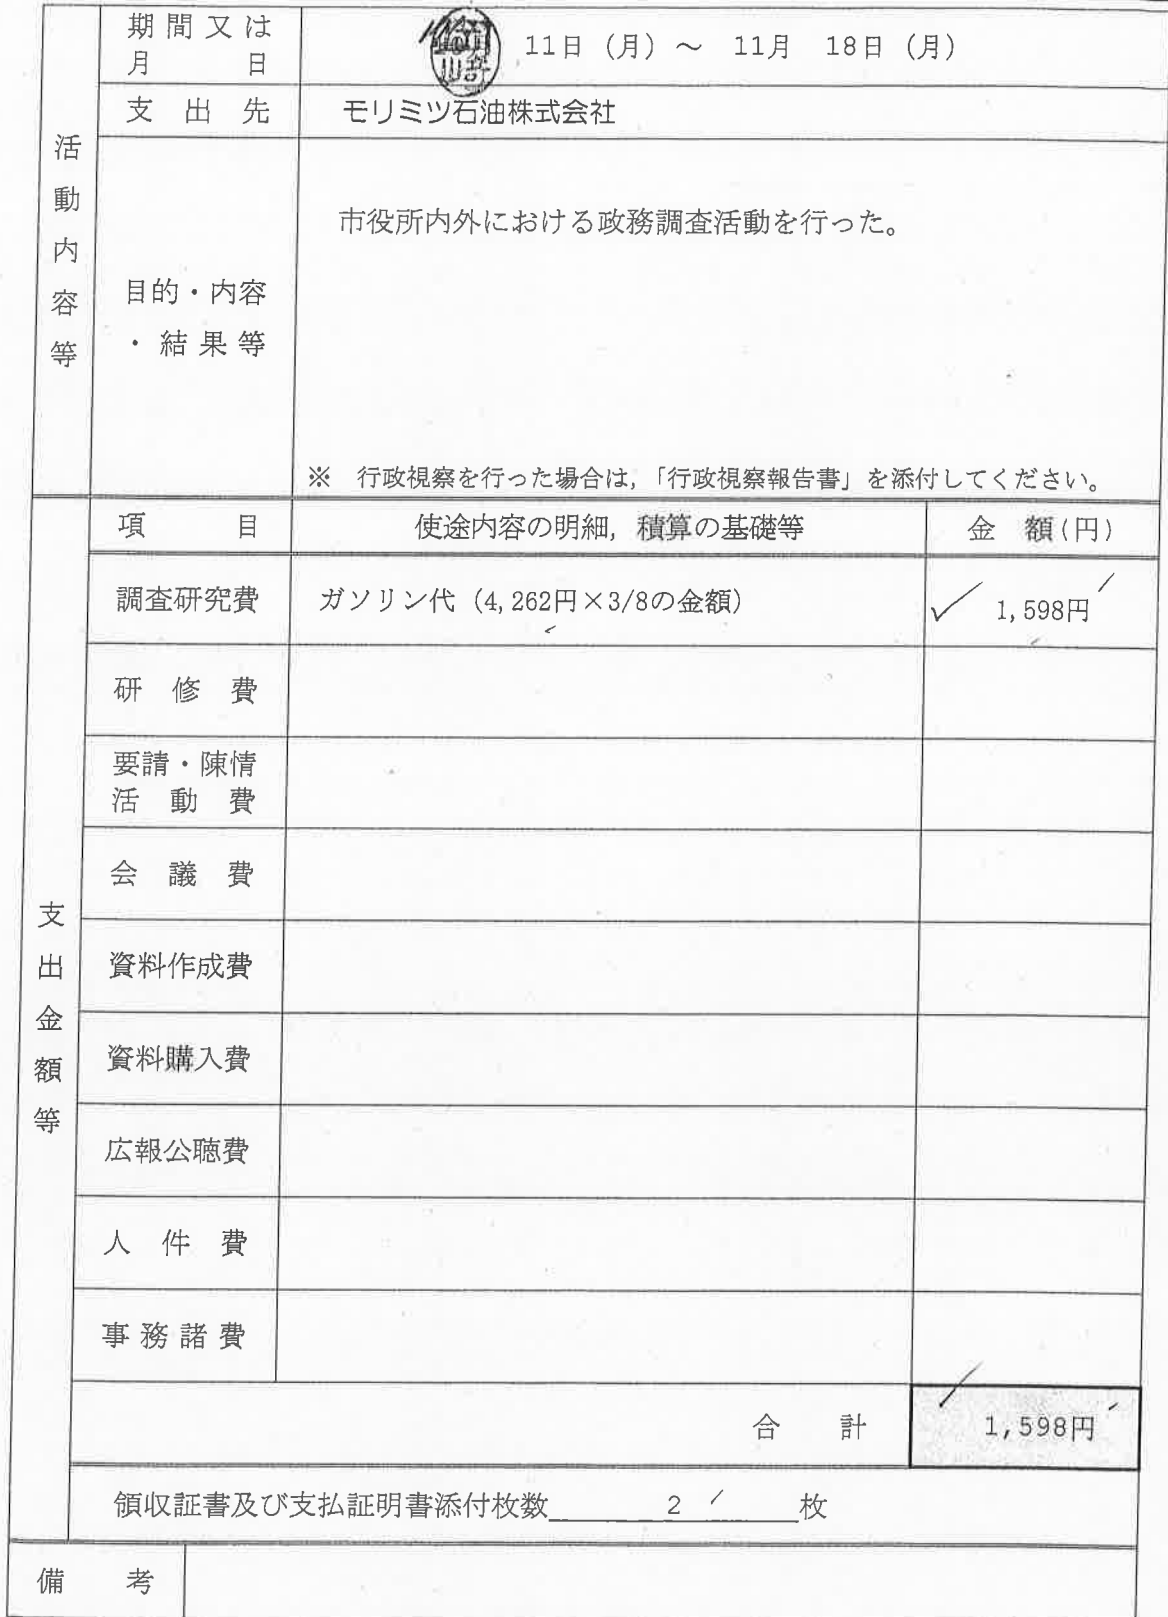 期間又は
月　　日
11日（月）～　11月　18日（月）
支　出　先
モリミツ石油株式会社
活動内容等
市役所内外における政務調査活動を行った。
目的・内容
・結果等
※　行政視察を行った場合は，「行政視察報告書」を添付してください。
項　　目
使途内容の明細，積算の基礎等
金　額(円)
調査研究費
ガソリン代（4,262円×3/8の金額）
1,598円
研　修　費
要請・陳情
活　動　費
会　議　費
支出金額等
資料作成費
資料購入費
広報公聴費
人　件　費
事務諸費
合　　計
1,598円
領収証書及び支払証明書添付枚数　2　枚
備　　考